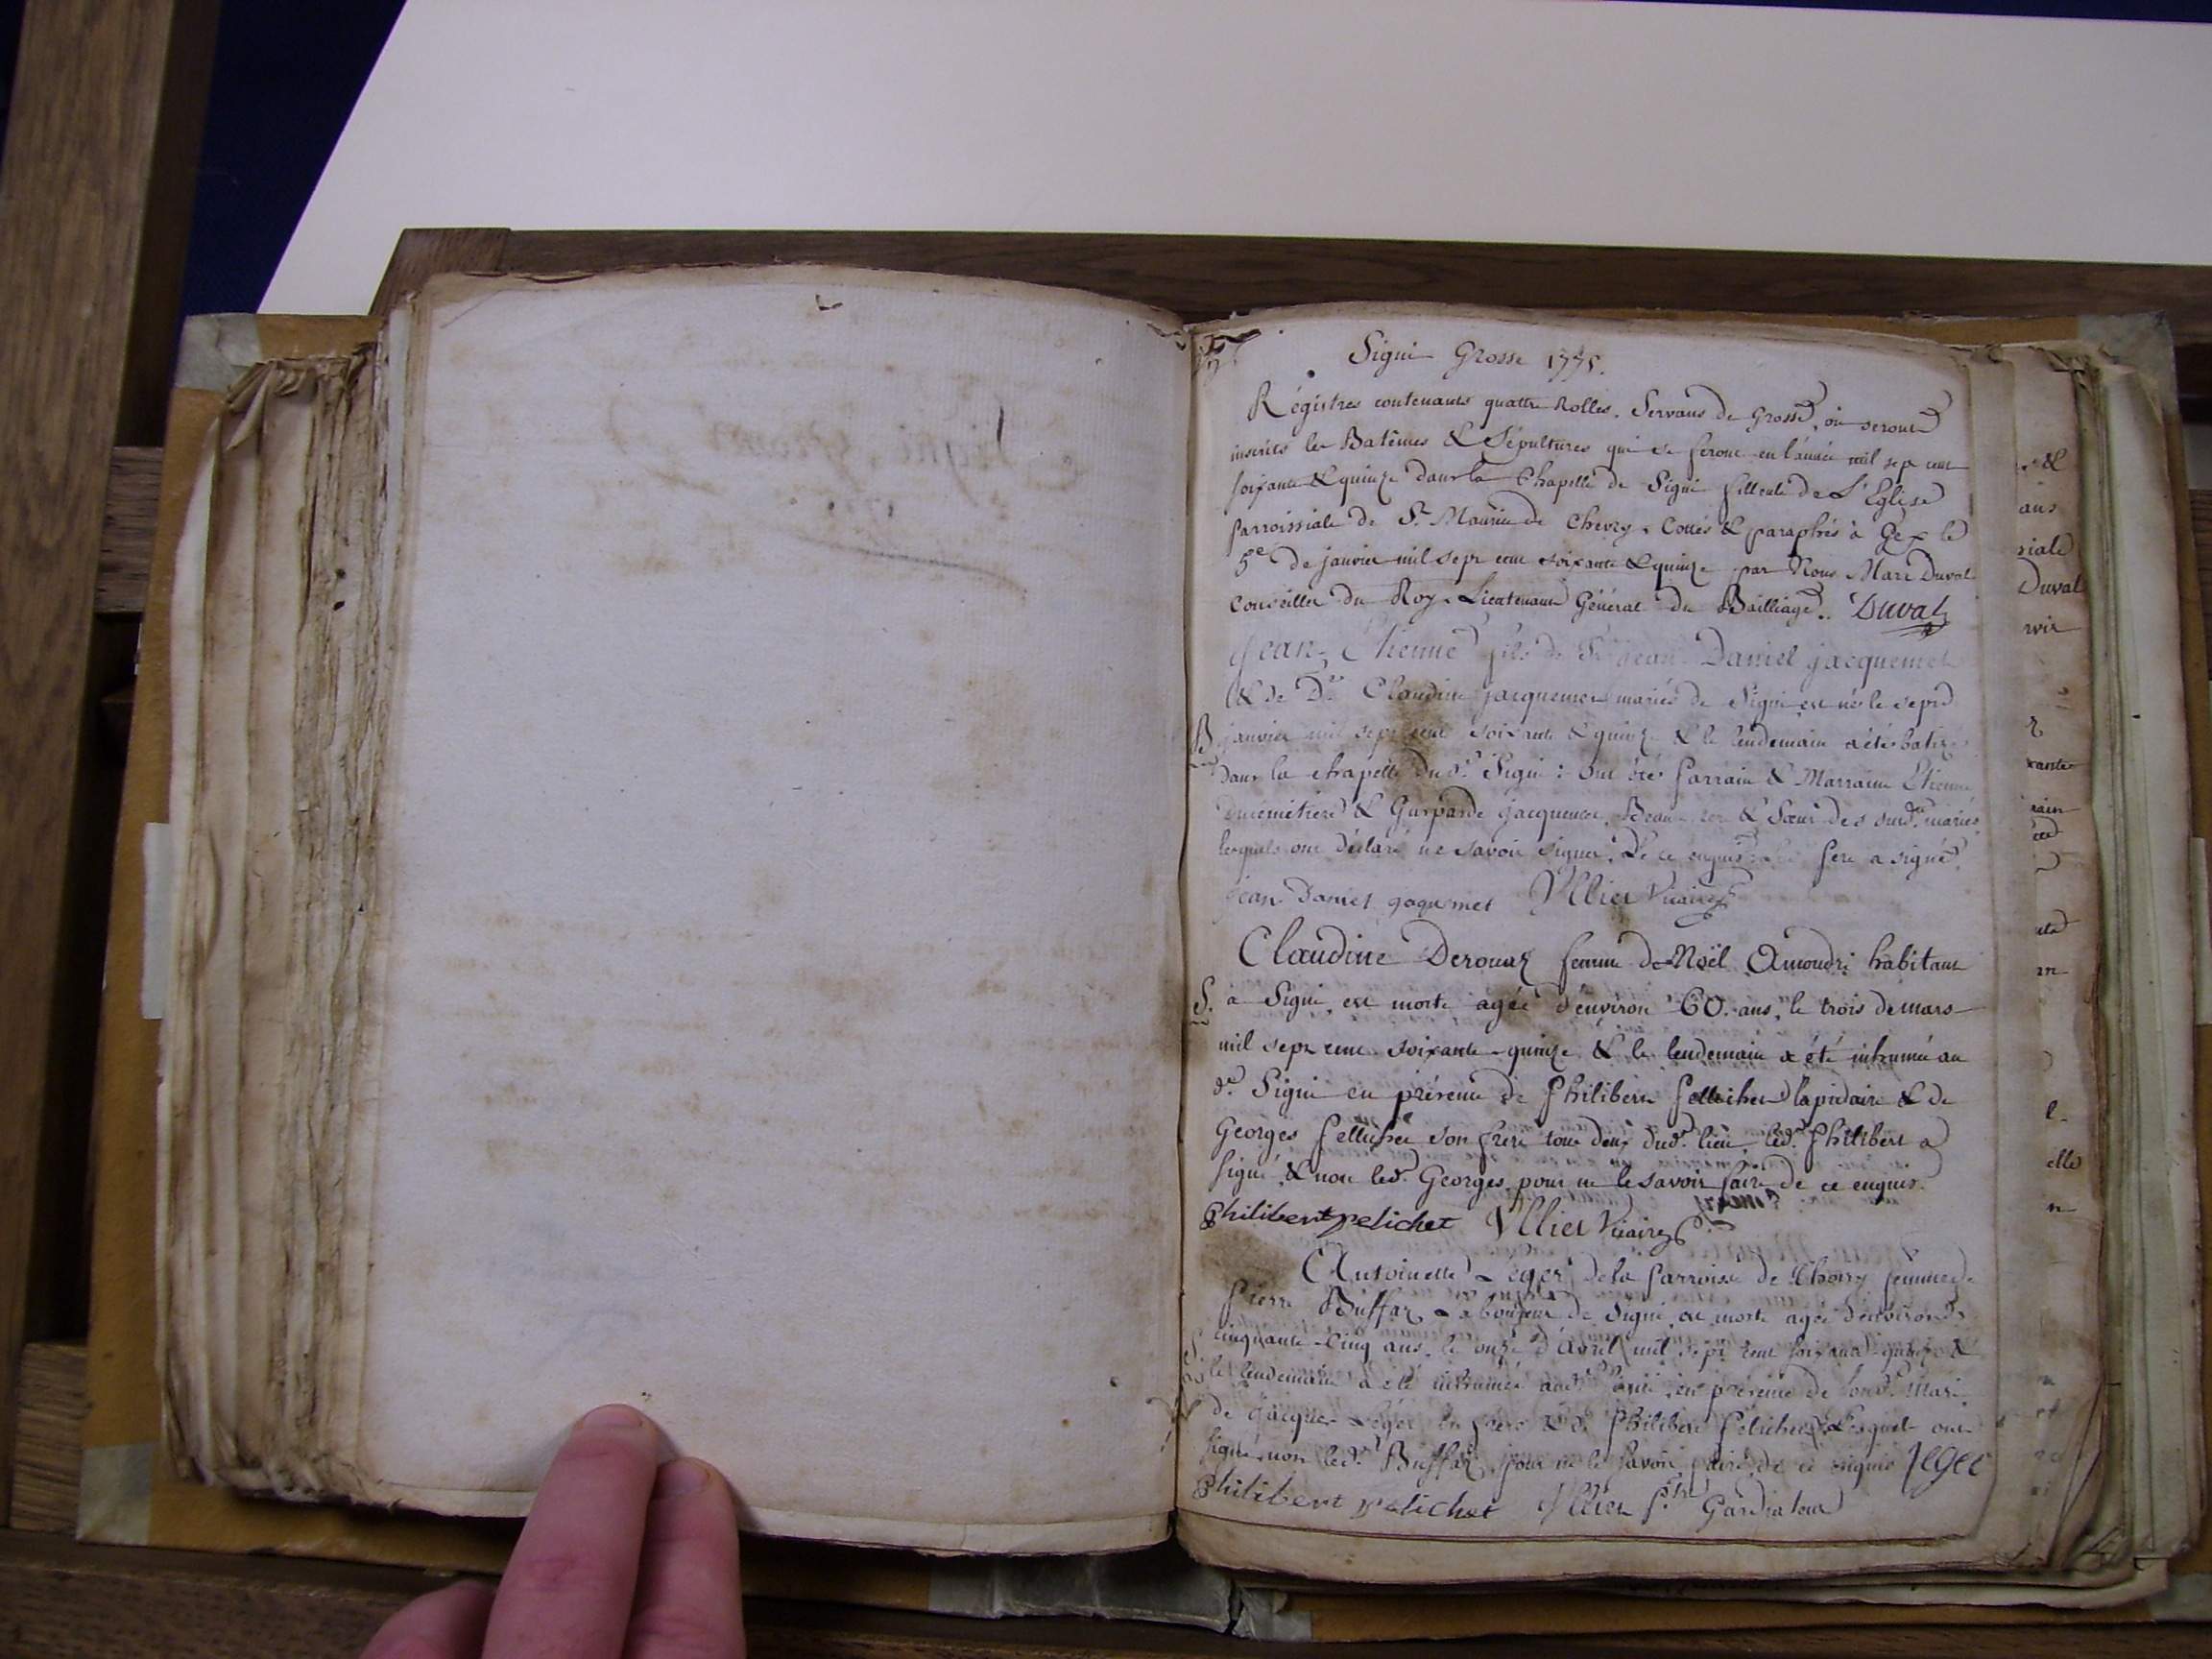 Signi Grosse 1775.
Régistres contenants quattre Rolles, Servans de Grosse, où seront
inscrits les Batêmes & Sépultures qui se feront en l'année mil sept cent
soixante & quinze dans la Chapelle de Signi filleule de L'Eglise
parroissiale de St. Maurice de Chevry. Cottés & paraphés à Gex le
5e. de janvier mil sept cent soixante & quinze par Nous Marc Duval
Conseiller du Roy, Lieutenant Général du Bailliage. Duval
Jean-Etienne fils de Sr. jean Daniel jacquemet
& de De. Claudine jacquemet mariés de Signi est né le sept
B. janvier mil sept cent soixante & quinze & le lendemain a été batisé
dans la chapelle dud. Signi : ont été parrain & Marraine Etienne
ducimetiere & Gasparde jacquemet, Beau & Sœur des susd. mariés
lesquels ont déclaré ne savoir signer. De ce enquis. Le pere a signé.
jean Daniel gaquemet Ullict Vicaire
Claudine Derouaz femme de Noël Amoudri habitant
S. à Signi, est morte agée d'environ 60. ans, le trois de mars
mil sept cent soixante-quinze & le lendemain a été inhumé au
d. Signi en présence de Philibert Pellichet lapidaire & de
Georges Pellichet son frere tous deux dud. lieu, led. Philibert a
signé, & non led. Georges pour ne le savoir faire de ce enquis.
Philibert pelichet Ullict Vicaire
Antoinette Leger de la parroisse de Thoiry femme de
Pierre Buffaz Laboureur de Signi est morte agée d'environ
S. cinquante-cinq ans, le onze d'avril mil sept cent soixante-quinze &
le lendemain a été inhumée aud. Signi, en présence de sond. Mari
de jacques Léger & de Philibert Pelichet. Lesquels ont
signé, non led. Buffaz, pour ne le savoir faire de ce enquis Leger
Philibert pelichet Ullict
ans
riale
Duval